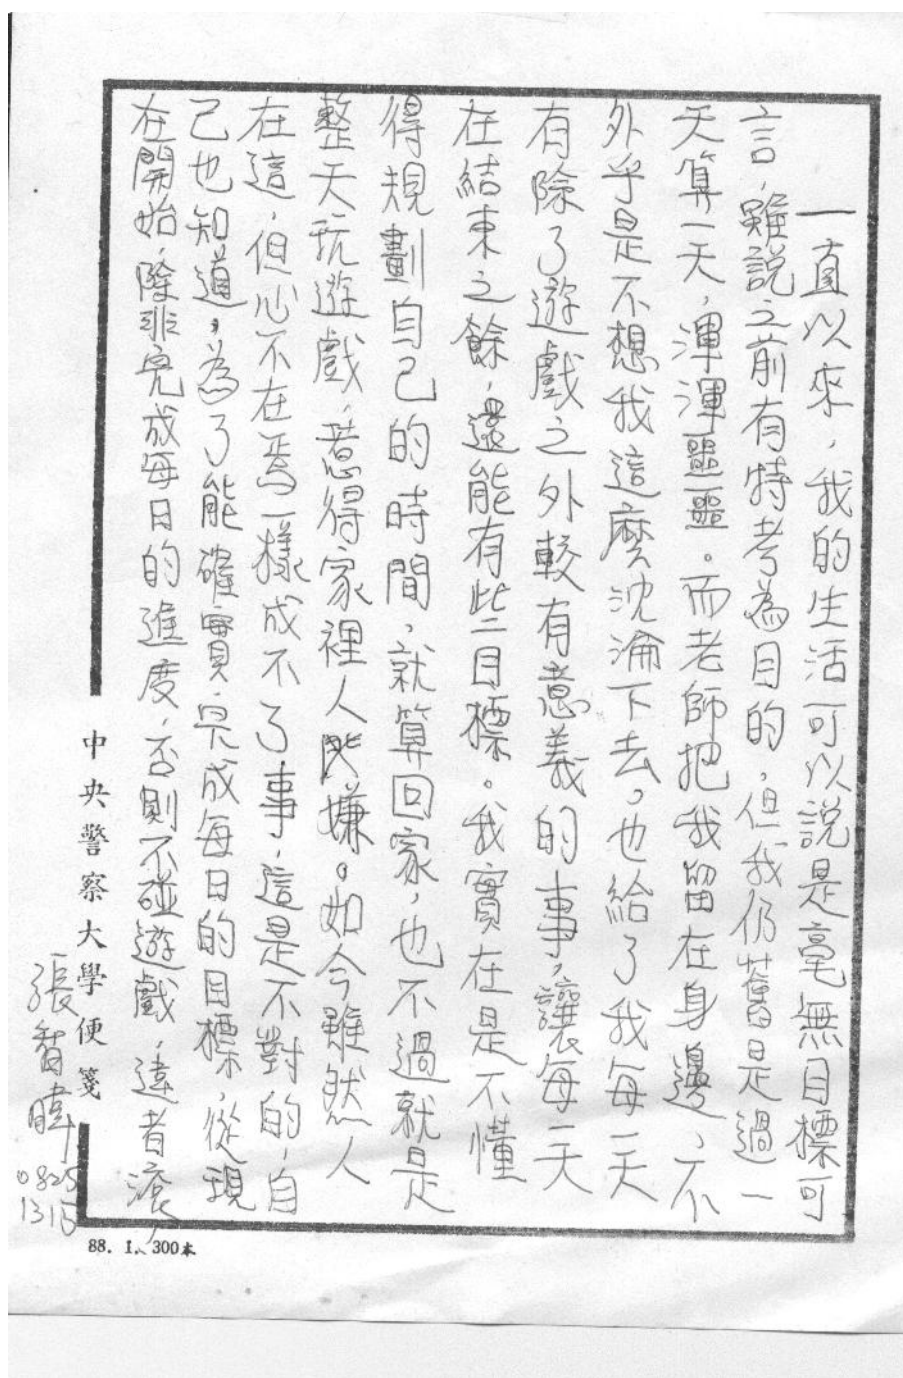 一直以來，我的生活可以說是毫無目標可
言，雖說之前有特考為目的，但我仍舊是過一
天算一天，渾渾噩噩。而老師把我留在身邊、不
外乎是不想我這麼沈淪下去。也給了我每一天
有除了遊戲之外較有意義的事，讓每一天
在結束之餘，還能有些目標。我實在是不懂
得規劃自己的時間，就算回家，也不過就是
整天玩遊戲，惹得家裡人嫌。如今雖然人
在這，但心不在焉一樣成不了事，這是不對的，自
己也知道，為了能確實完成每日的目標，從現
在開始，除非完成每日的進度，否則不碰遊戲，違者滾，
中央警察大學便箋
張智暐
0825
1315
88. 1. 300本